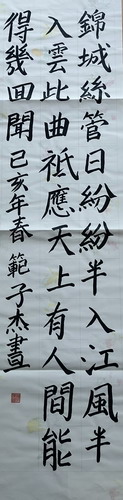 錦城絲管日紛紛半入江風半
入雲此曲祗應天上有人間能
得幾回聞己亥年春範子杰書